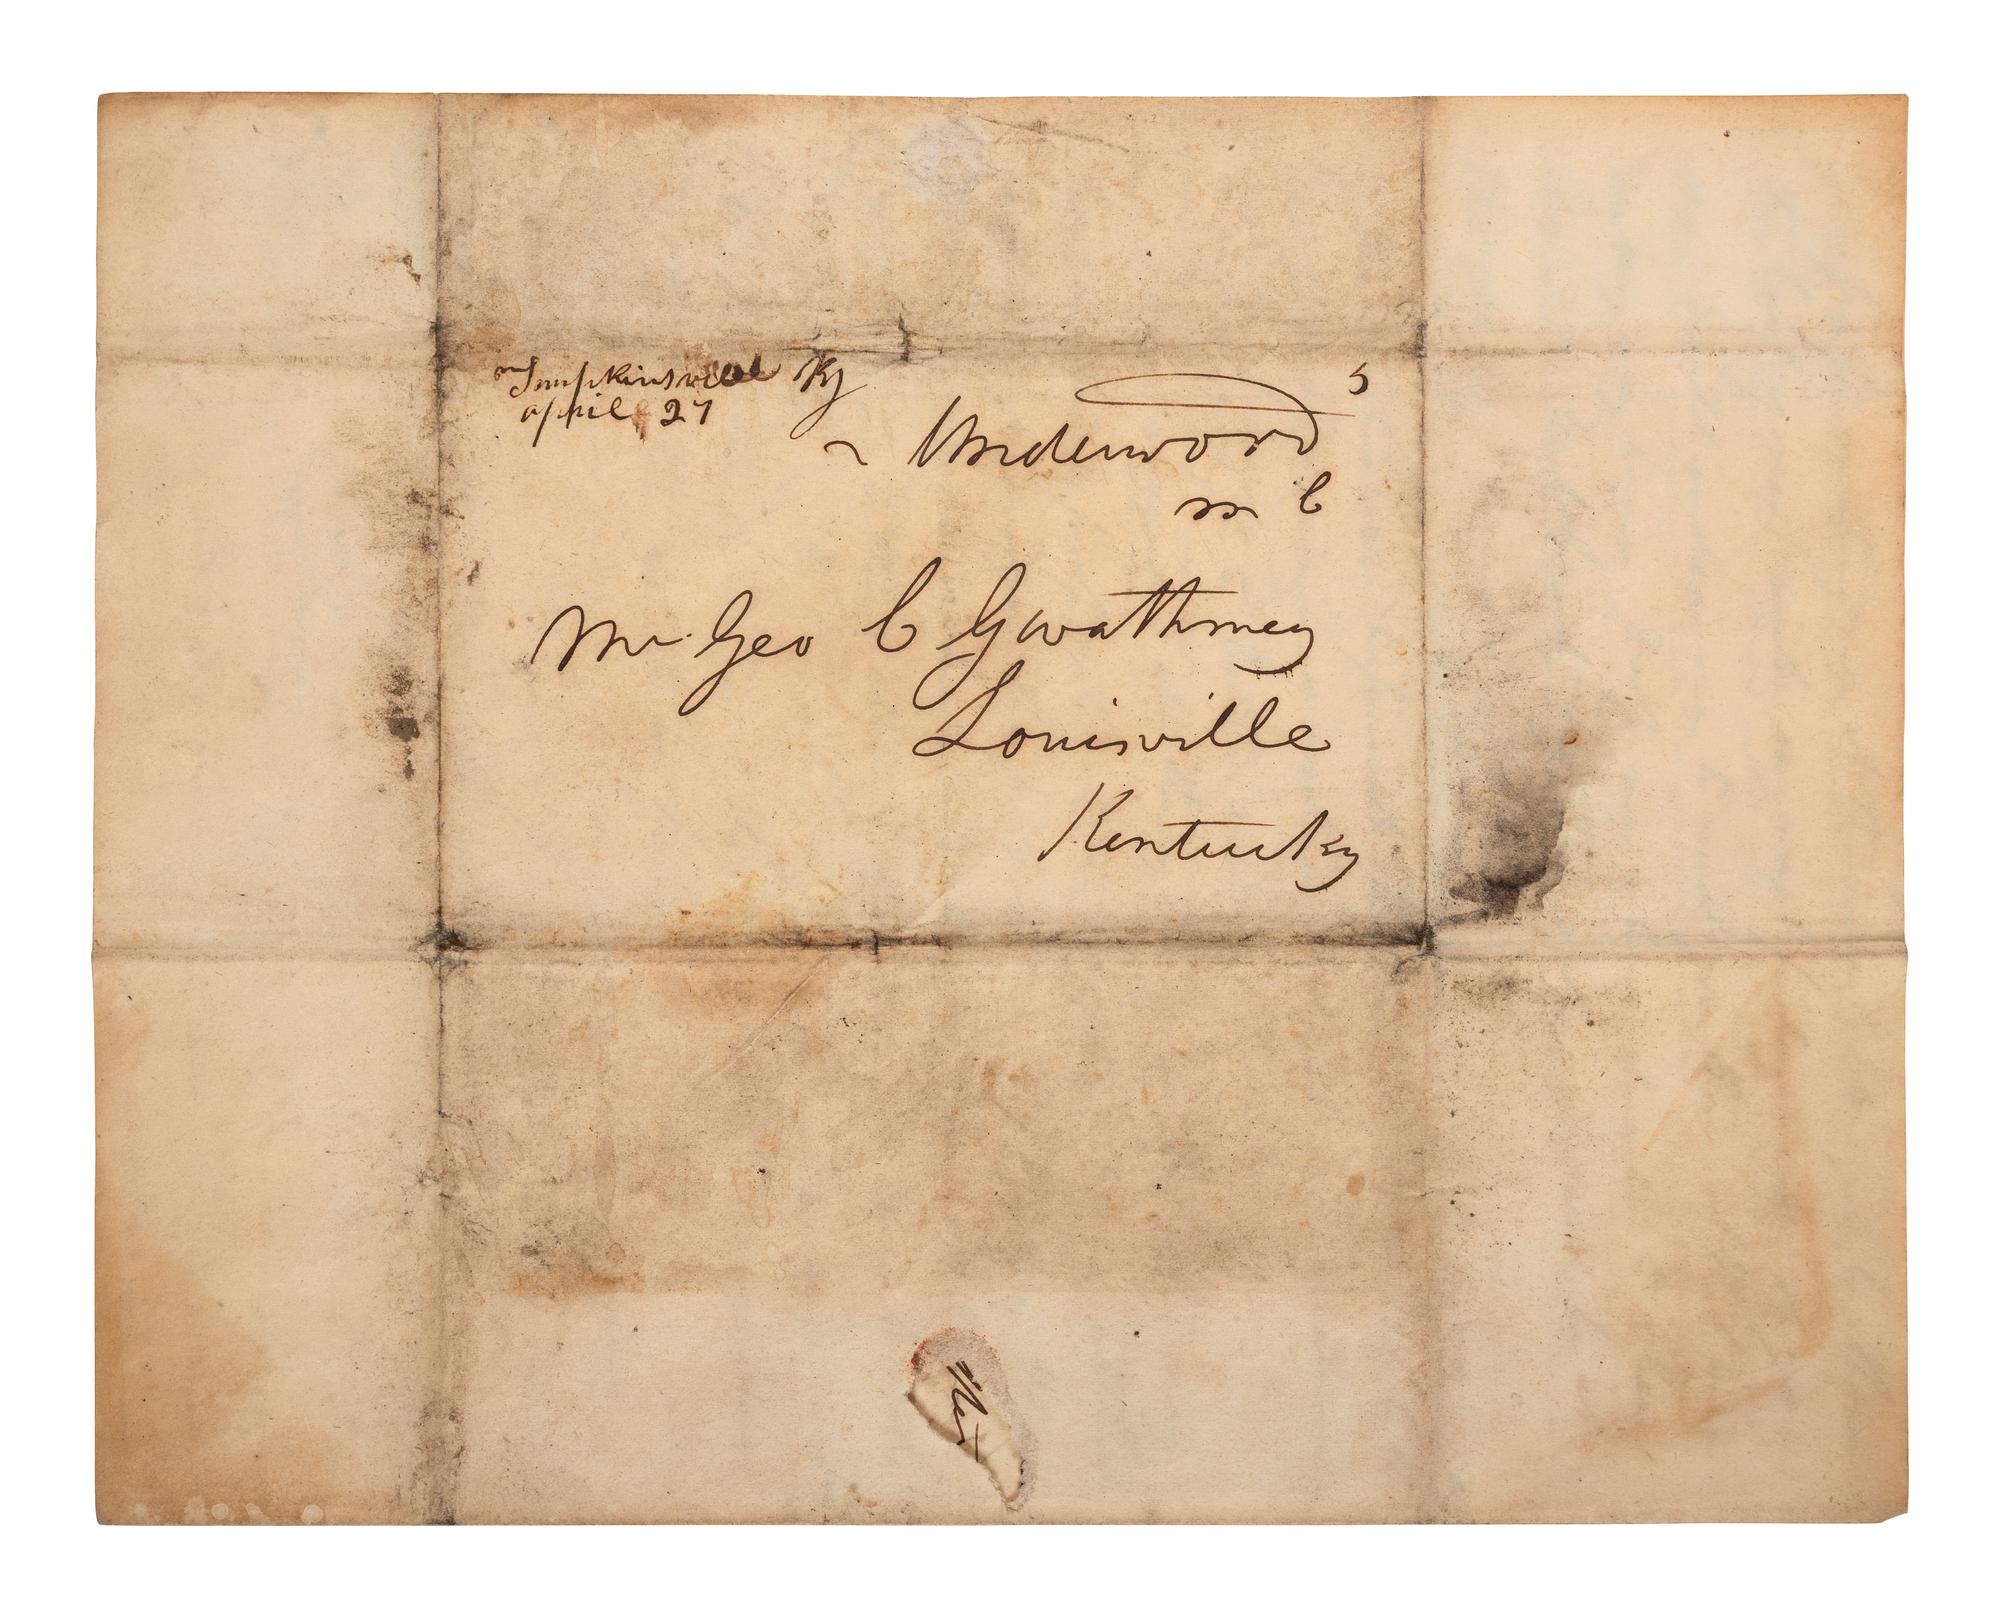 Tompkinsville Ky
april 27
5
Underwood
m C
Mr. Geo C Gwathmey
Louisville
Kentucky